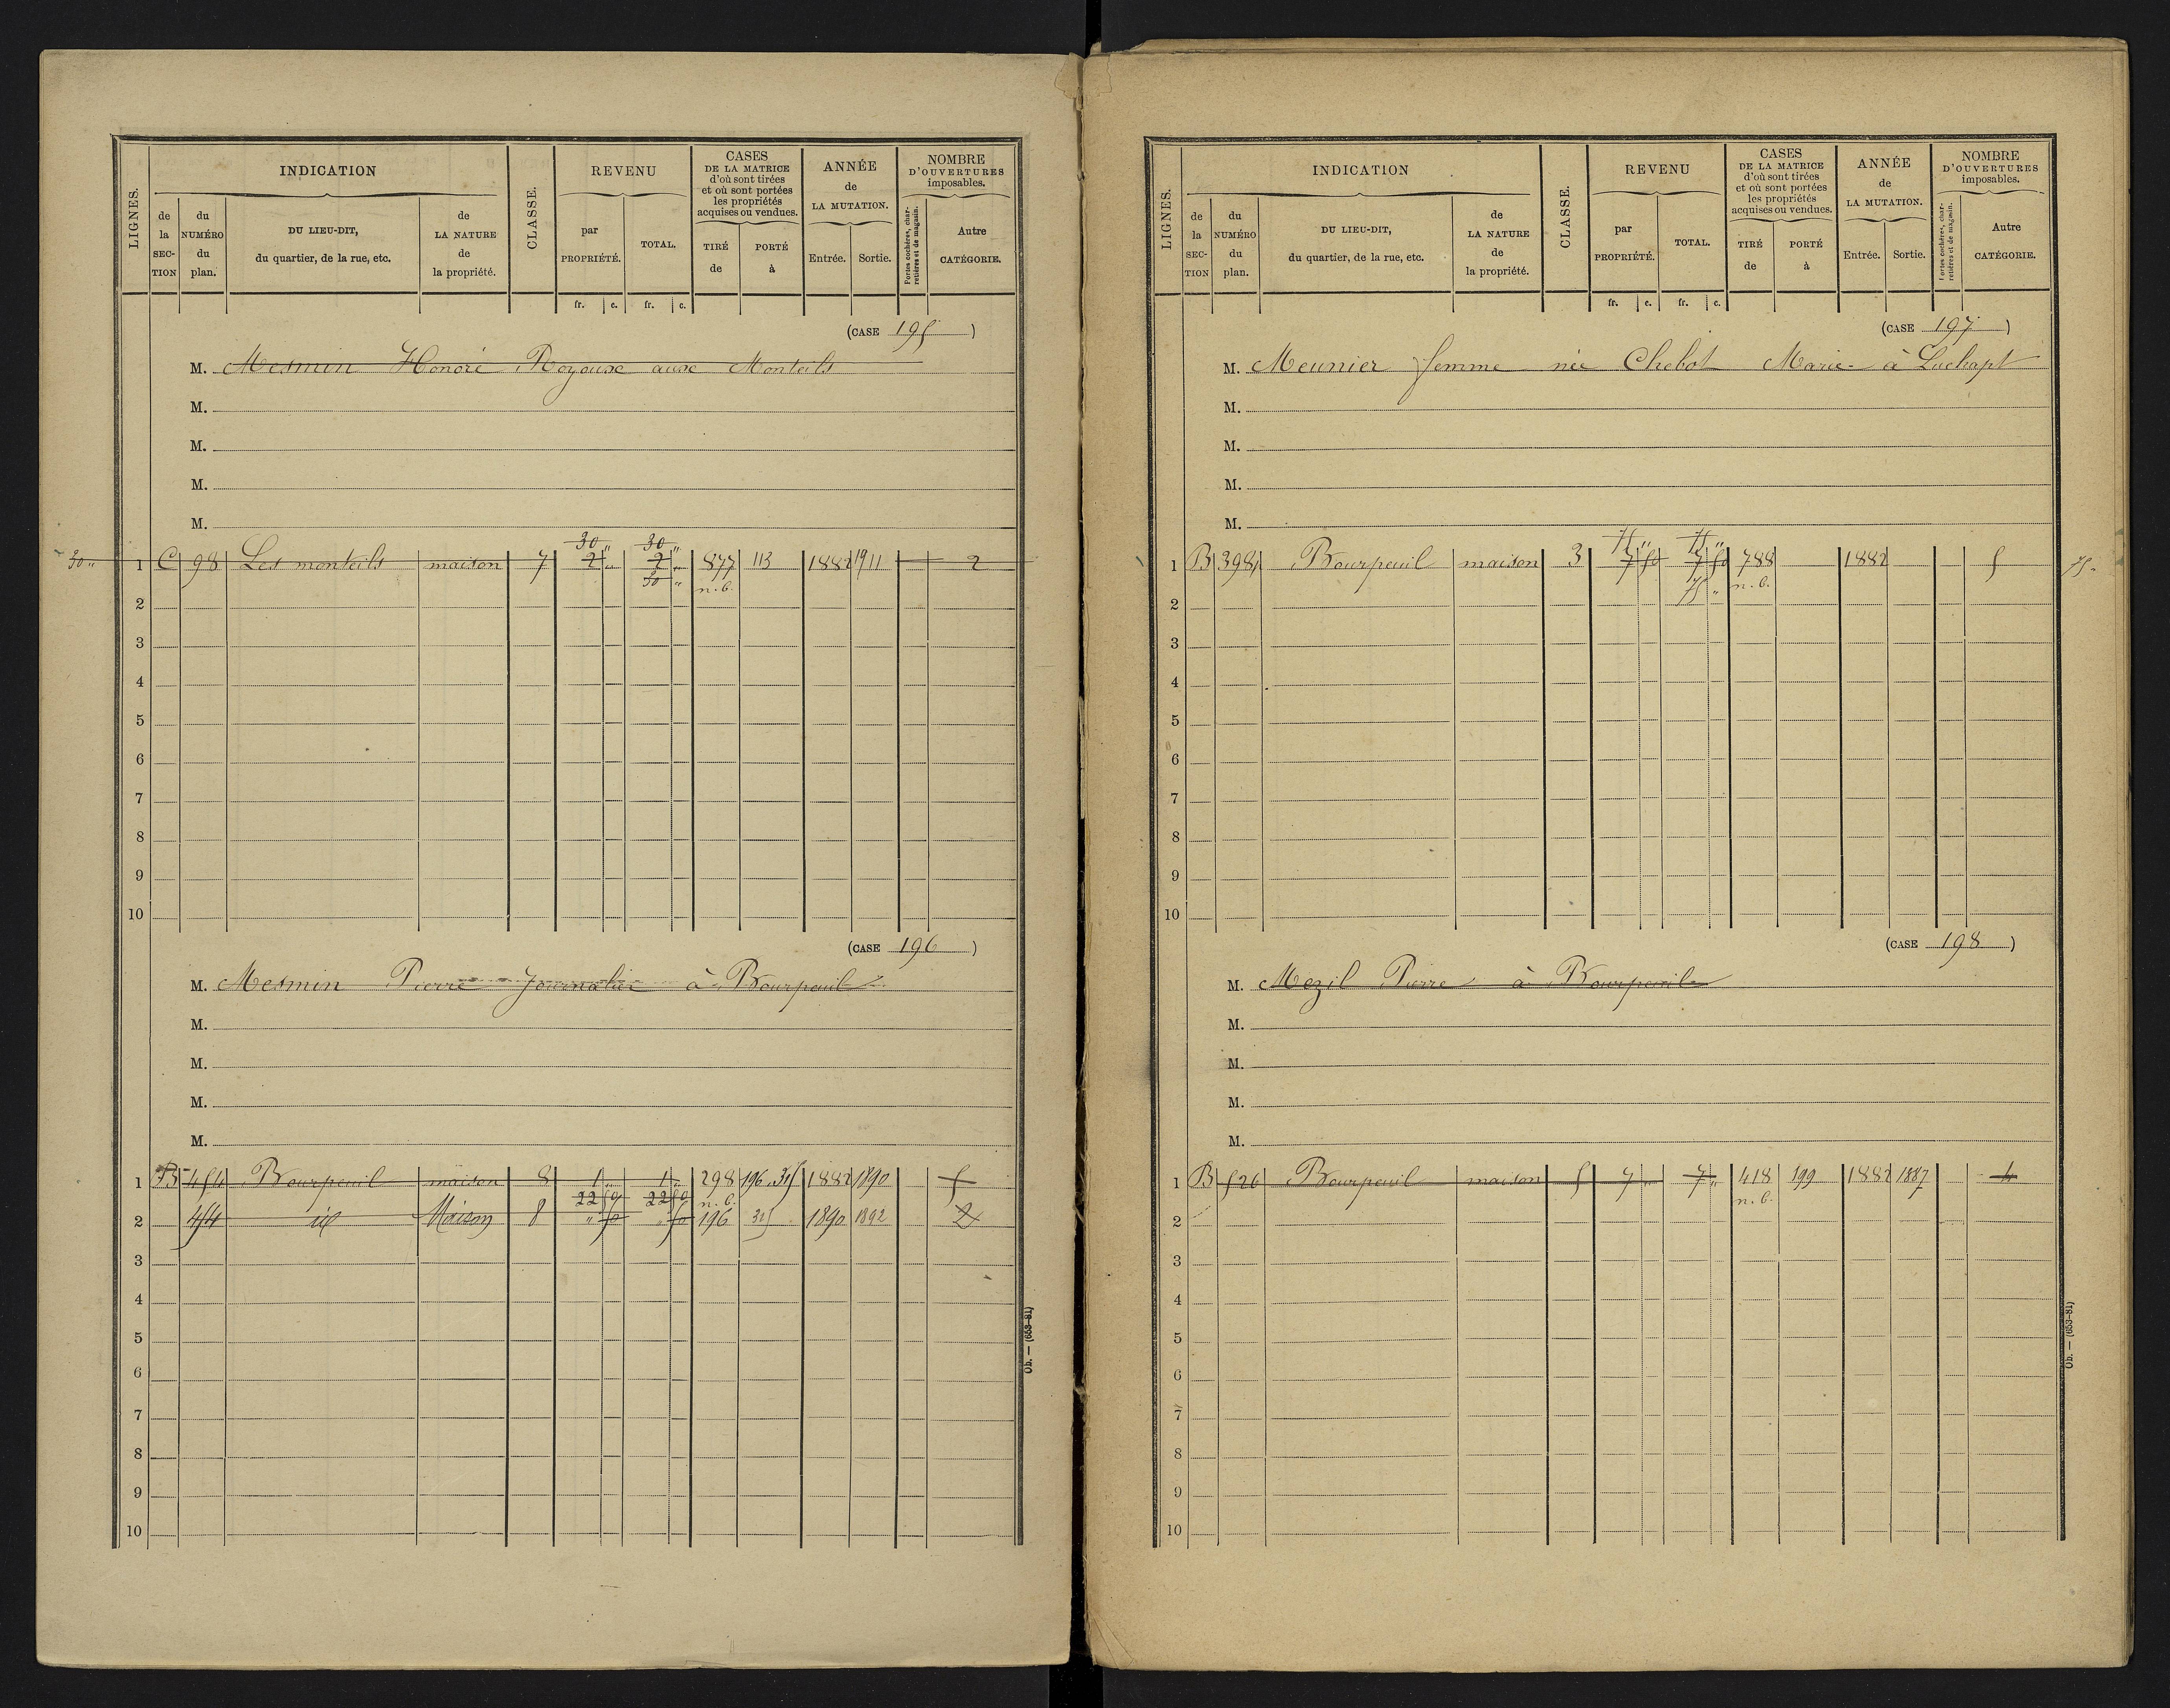 LIGNES. INDICATION CLASSE. REVENU CASES DE LA MATRICE d'où sont tirées et où sont portées les propriétés acquises ou vendues. ANNÉE de LA MUTATION. NOMBRE D'OUVERTURES imposables.
de la SECTION du NUMÉRO du plan. DU LIEU-DIT, du quartier, de la rue, etc. de LA NATURE de la propriété. par PROPRIÉTÉ. TOTAL. TIRÉ de PORTÉ à Entrée. Sortie. Portes cochères, charretières et de magasin. Autre CATÉGORIE.
fr. c. fr. c.
(CASE 195)
M. Mesmin Honoré Royoux aux Monteils
M.
M.
M.
M.
30 " 30 "
30 " 1 C 98 Les monteils maison 7 2 " 2 " 877 113 1882 1911 2
30 " n.b.
2
3
4
5
6
7
8
9
10
(CASE 196)
M. Mesmin Pierre Journalier à Bourpeuil
M.
M.
M.
M.
1 B 454 Bourpeuil maison 8 1 " 1 " 298 196.315 1882 1890 5
22 50 22 50 n.b.
2 454 id Maison 8 " 50 " 50 196 315 1890 1892 2
3
4
5
6
7
8
9
10
Ob. — (653-81)
LIGNES. INDICATION CLASSE. REVENU CASES DE LA MATRICE d'où sont tirées et où sont portées les propriétés acquises ou vendues. ANNÉE de LA MUTATION. NOMBRE D'OUVERTURES imposables.
de la SECTION du NUMÉRO du plan. DU LIEU-DIT, du quartier, de la rue, etc. de LA NATURE de la propriété. par PROPRIÉTÉ. TOTAL. TIRÉ de PORTÉ à Entrée. Sortie. Portes cochères, charretières et de magasin. Autre CATÉGORIE.
fr. c. fr. c.
(CASE 197)
M. Meunier femme née Chebot Marie à Luchapt
M.
M.
M.
M.
75 " 75 "
1 B 398 Bourpeuil maison 3 7 50 7 50 788 1882 5 75 "
75 " n.b.
2
3
4
5
6
7
8
9
10
(CASE 198)
M. Mezil Pierre à Bourpeuil
M.
M.
M.
M.
1 B 526 Bourpeuil maison 5 7 " 7 " 418 199 1882 1887 4
n.b.
2
3
4
5
6
7
8
9
10
Ob. — (653-81)